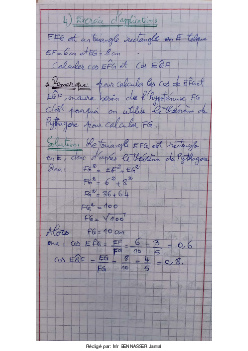 4) Exercice d'application
EFG est un triangle rectangle en E tel que
EF = 6 cm et EG = 8 cm
Calculer cos EFG et cos EGF
Remarque pour calculer les cos de EFG et
EGF, nous avons besoin de l'hypoténuse FG
c'est pourquoi on utilise le théorème de
Pythagore pour calculer FG.
Solution: Le triangle EFG est rectangle
en E, donc d'après le théorème de Pythagore
FG² = EF² + EG²
FG² = 6² + 8²
FG² = 36 + 64
FG² = 100
FG = √100
FG = 10 cm
Alors
cos EFG = EF/FG = 6/10 = 3/5 = 0,6
cos EGF = EG/FG = 8/10 = 4/5 = 0,8.
Rédigé par: Mr BENNASSER Jamal